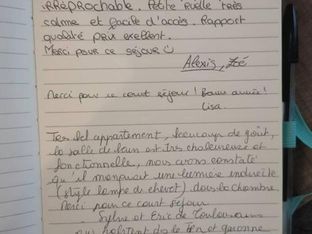 irréprochable. Petite ruelle très
calme et facile d'accès. Rapport
qualité prix exellent.
Merci pour ce séjour
Alexis, Zoé
Merci pour ce court séjour! Bonne année!
Lisa.
Très bel appartement, beaucoup de goût,
la salle de bain est très chaleureuse et
fonctionnelle, nous avons constaté
qu'il manquait une lumière indirecte
(style lampe de chevet) dans la chambre.
Merci pour ce court séjour
Sylvie et Eric de
qui habitent